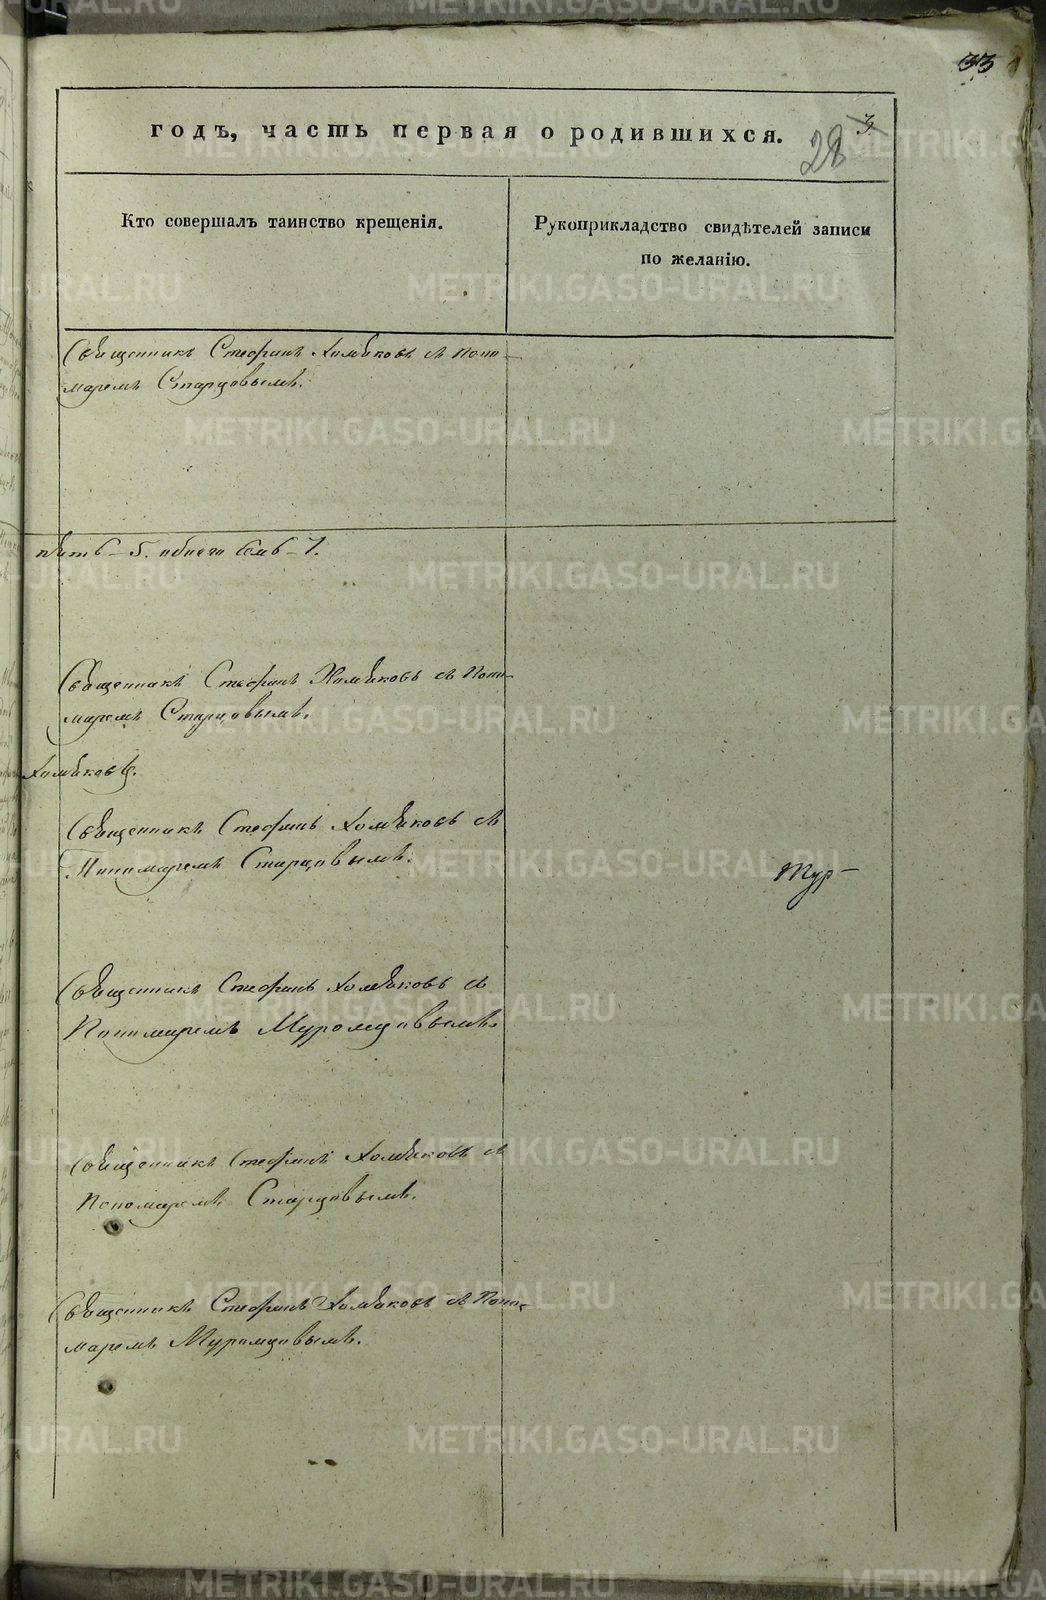 33
годъ, часть первая о родившихся.
28 3
Кто совершалъ таинство крещенія.
Рукоприкладство свидѣтелей записи
по желанію.
Священникъ Стефанъ Хомяковъ съ Поно-
маремъ Старцовымъ.
пять - 5. обоего Семь - 7.
Священникъ Стефанъ Хомяковъ съ Поно-
маремъ Старцовымъ.
Хомяковъ.
Священникъ Стефанъ Хомяковъ съ
Пономаремъ Старцовымъ.
Тур-
Священникъ Стефанъ Хомяковъ съ
Пономаремъ Муромцовымъ.
Священникъ Стефанъ Хомяковъ съ
Пономаремъ Старцовымъ.
Священникъ Стефанъ Хомяковъ съ Поно-
маремъ Муромцовымъ.
METRIKI.GASO-URAL.RU